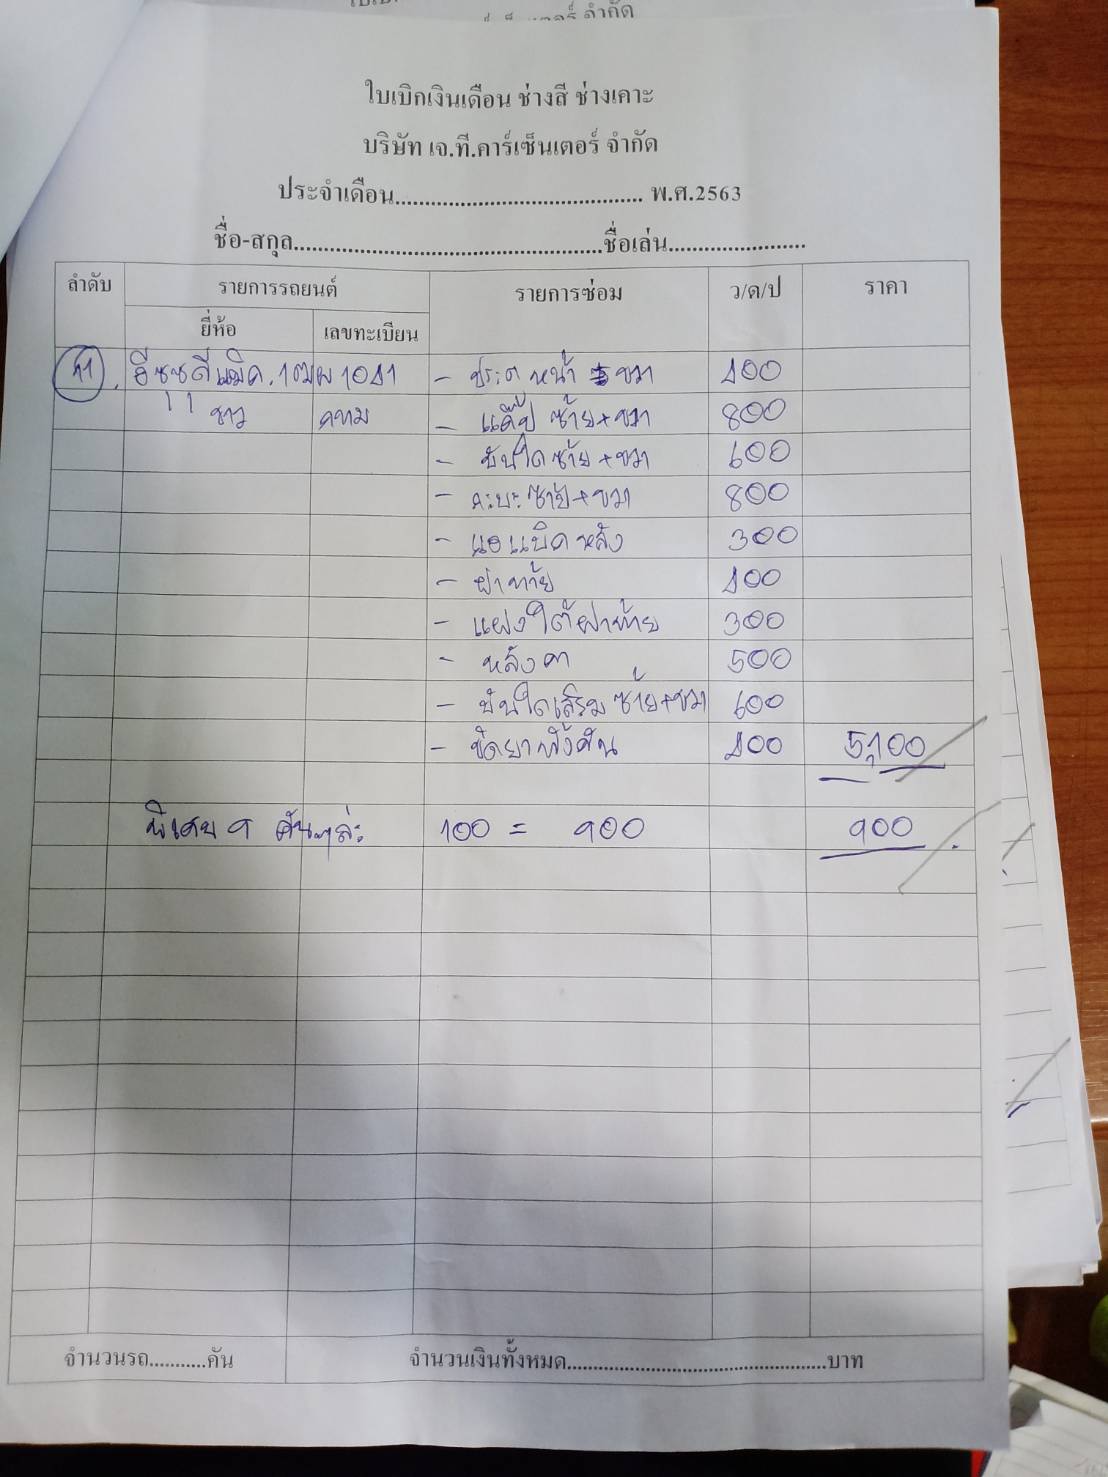 จำกัด
ใบเบิกเงินเดือน ช่างสี ช่างเคาะ
บริษัท เจ.ที.คาร์เซ็นเตอร์ จำกัด
ประจำเดือน.......................................... พ.ศ.2563
ชื่อ-สกุล....................................................ชื่อเล่น.......................
ลำดับ รายการรถยนต์ รายการซ่อม ว/ด/ป ราคา
ยี่ห้อ เลขทะเบียน
11. อีซูซุดีแม็ค. - ประตูหน้า ขวา 400
ขาว กทม - แก๊ป ซ้าย+ขวา 800
- บันใดซ้าย+ขวา 600
- กะบะซ้าย+ขวา 800
- แอแบิคหลัง 300
- ฝาท้าย 400
- แผงใต้ฝาท้าย 300
- หลังคา 500
- บันใดเสริมซ้าย+ขวา 600
- ขัดยาทั้งคัน 400 5,100
พิเศษ 9 คันๆล่ะ 100 = 900 900
จำนวนรถ...........คัน จำนวนเงินทั้งหมด..............................................บาท